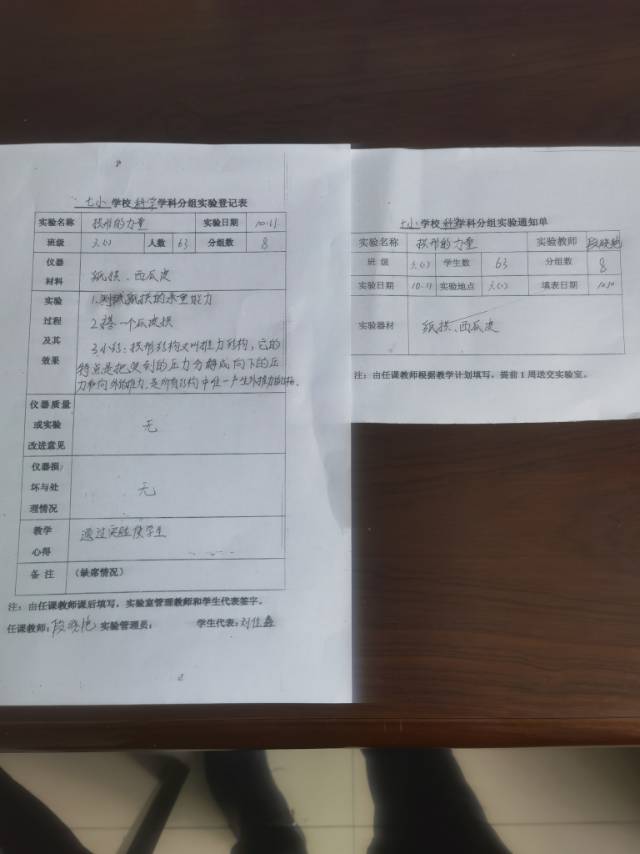 七小 学校 科学 学科分组实验登记表
实验名称 拱形的力量 实验日期
班级 六(1) 人数 63 分组数 8
仪器材料 纸拱、西瓜皮
实验过程及其效果 1.测试纸拱的承重能力
2.搭一个瓜皮拱
3.小结:拱形结构又叫推力结构,它的
特点是把受到的压力分解成向下的压
力和向外的推力,是所有结构中唯一产生外推力的结构。
仪器质量或实验改进意见 无
仪器损坏与处理情况 无
教学心得 通过实验使学生
备注 (缺席情况)
注:由任课教师课后填写,实验室管理教师和学生代表签字。
任课教师:段晓艳 实验管理员: 学生代表:刘佳鑫
七小 学校 科学 学科分组实验通知单
实验名称 拱形的力量 实验教师 段晓艳
班级 六(1) 学生数 63 分组数 8
实验日期 10-11 实验地点 六(1) 填表日期 10.10
实验器材 纸拱、西瓜皮
注:由任课教师根据教学计划填写,提前1周送交实验室。